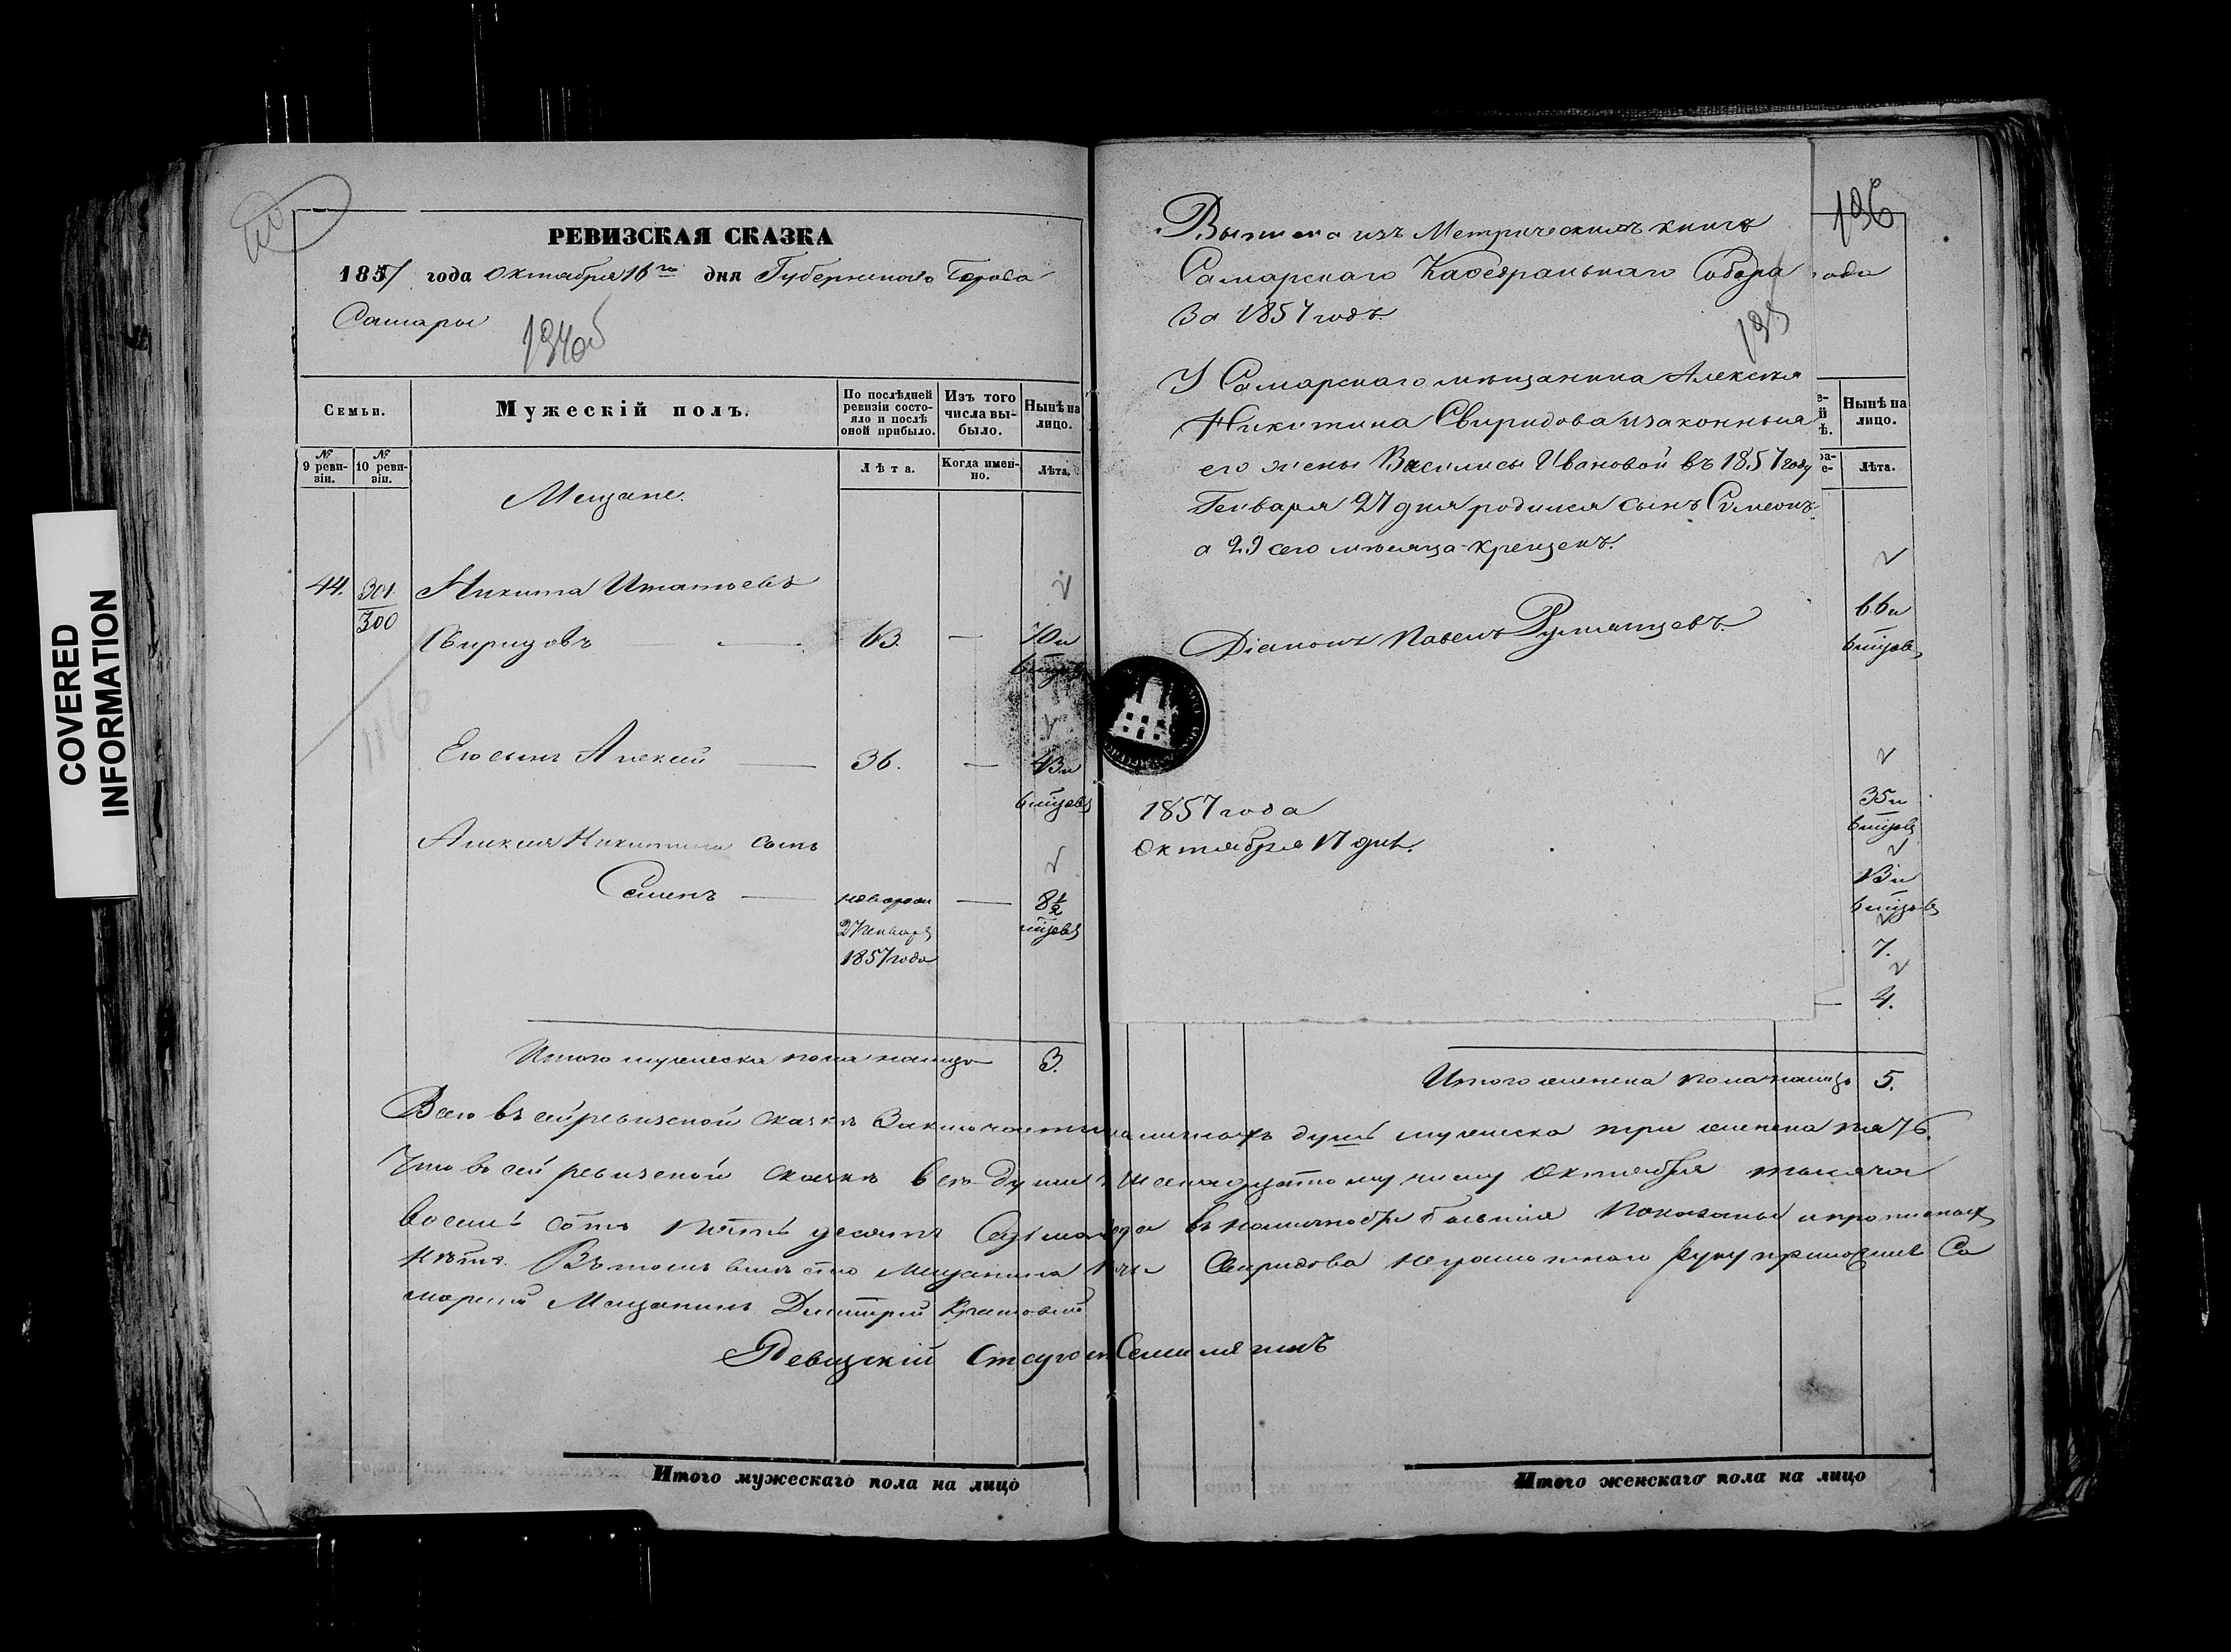 COVERED
INFORMATION
РЕВИЗСКАЯ СКАЗКА
1857 года Октября 16го дня Губернскаго Города
Самары
194об
Семьи.
Мужескій полъ.
По послѣдней ревизіи состояло и послѣ оной прибыло.
Изъ того числа выбыло.
Нынѣ на лицо.
№ 9 ревизіи.
№ 10 ревизіи.
Лѣта.
Когда именно.
Лѣта.
Мещане.
44. 301 Никита Игнатьевъ
300
Свиридовъ — 63. — 70 и
6 місяцовъ
Его сынъ Алексей — 36. — 43 и
6 місяцовъ
Алексея Никитина сынъ
Семенъ — новорож — 8½
27 Генваря місяцовъ
1857 года
Итого мужеска пола налицо 3.
196
Выписка изъ Метрическихъ книгъ
Самарскаго Кафедральнаго Собора
За 1857 годъ.
195
У Самарскаго мѣщанина Алексѣя
Никитина Свиридова и законныя
его жены Василисы Ивановой въ 1857 году
Генваря 27 дня родился сынъ Симеонъ
а 29 сего мѣсяца крещенъ.
Діаконъ Павелъ Румянцевъ.
1857 года
Октября 17 дня.
ода
Нынѣ на лицо.
Лѣта.
66 и
6 місяцов
35 и
6 місяцовъ
13 и
6 місяцовъ
7.
4.
Итого женска пола налицо 5.
Всего въ сей ревизской сказкѣ Заключается наличныхъ душъ мужеска три женска пять.
Что во сей ревизской сказкѣ все души к шеснадцатому числу Октября тысяча
восемь сотъ пять десятъ Седьмаго года въ наличности бывшія показаны и прописныхъ
нѣтъ. Въ томъ вмѣсто Мещанина Свиридова неграмотнаго руку приложилъ Са
марский Мещанинъ Дмитрий
Ревизскій Староста
Итого мужескаго пола на лицо
Итого женскаго пола на лицо